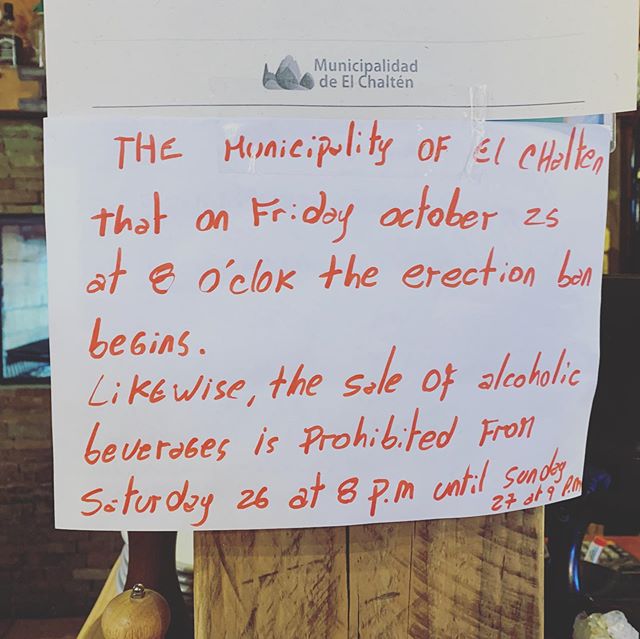 Municipalidad
de El Chaltén
THE Municipality OF El CHalten
that on Friday october 25
at 8 O'clok the erection ban
begins.
Likewise, the sale OF alcoholic
beverages is Prohibited From
Saturday 26 at 8 p.m until Sunday
27 at 9 p.m